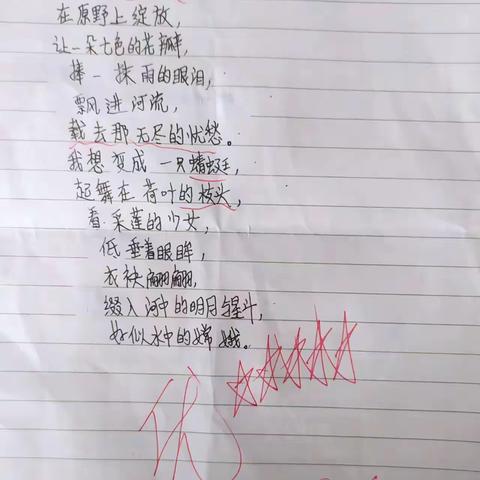 在原野上绽放,
让一朵七色的花瓣,
捧一抹雨的眼泪,
飘进河流,
载去那无尽的忧愁。
我想变成一只蜻蜓,
起舞在荷叶的枝头,
看采莲的少女,
低垂着眼眸,
衣袂翩翩,
缀入河中的明月与星斗,
好似水中的嫦娥。
优